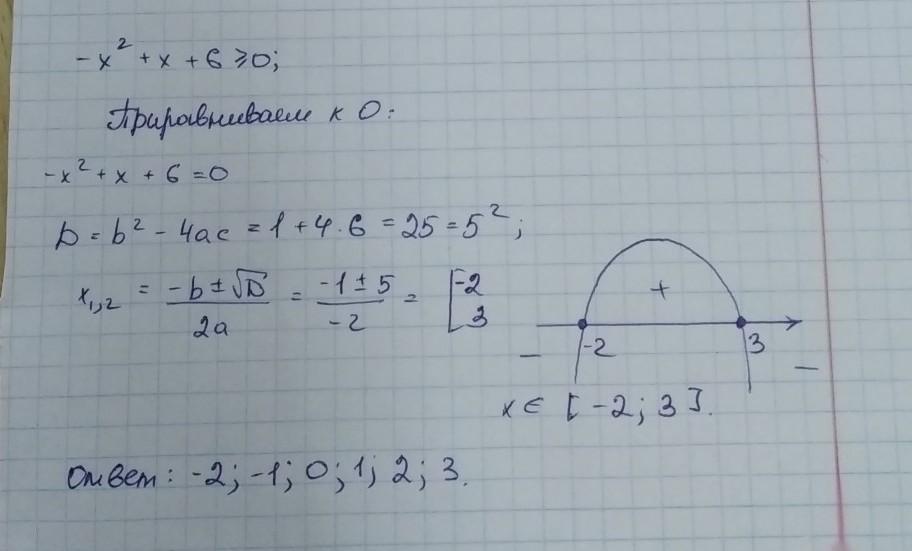 -x² + x + 6 ≥ 0;
Приравниваем к 0:
-x² + x + 6 = 0
D = b² - 4ac = 1 + 4 · 6 = 25 = 5²;
x₁,₂ = (-b ± √D)/(2a) = (-1 ± 5)/(-2) = [-2 3
+
- -2 3 -
x ∈ [-2; 3].
Ответ: -2; -1; 0; 1; 2; 3.